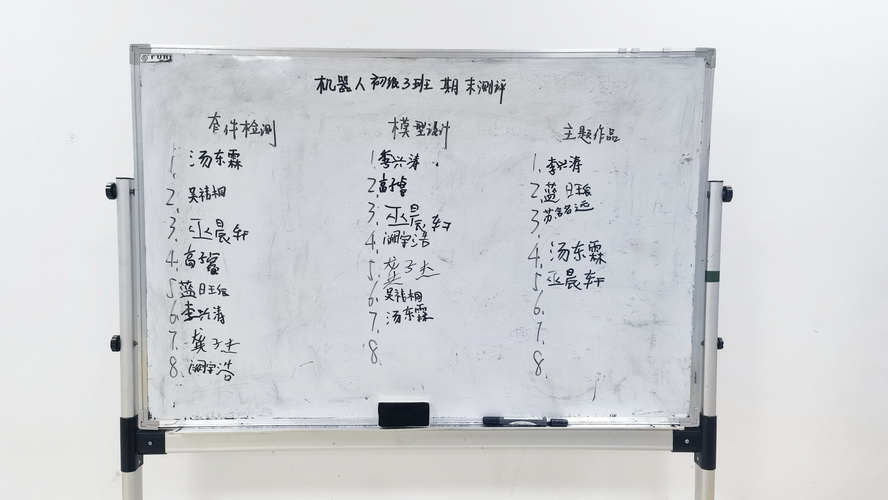 机器人初级3班 期末测评
套件检测
1. 汤东霖
2. 吴禧桐
3. 巫晨轩
4. 高子
5. 蓝日
6. 李兴涛
7. 龚子杰
8. 阙宇浩
模型设计
1. 李兴涛
2. 高子
3. 巫晨轩
4. 阙宇浩
5. 龚子杰
6. 吴禧桐
7. 汤东霖
8.
主题作品
1. 李兴涛
2. 蓝日
3. 苏
4. 汤东霖
5. 巫晨轩
6.
7.
8.